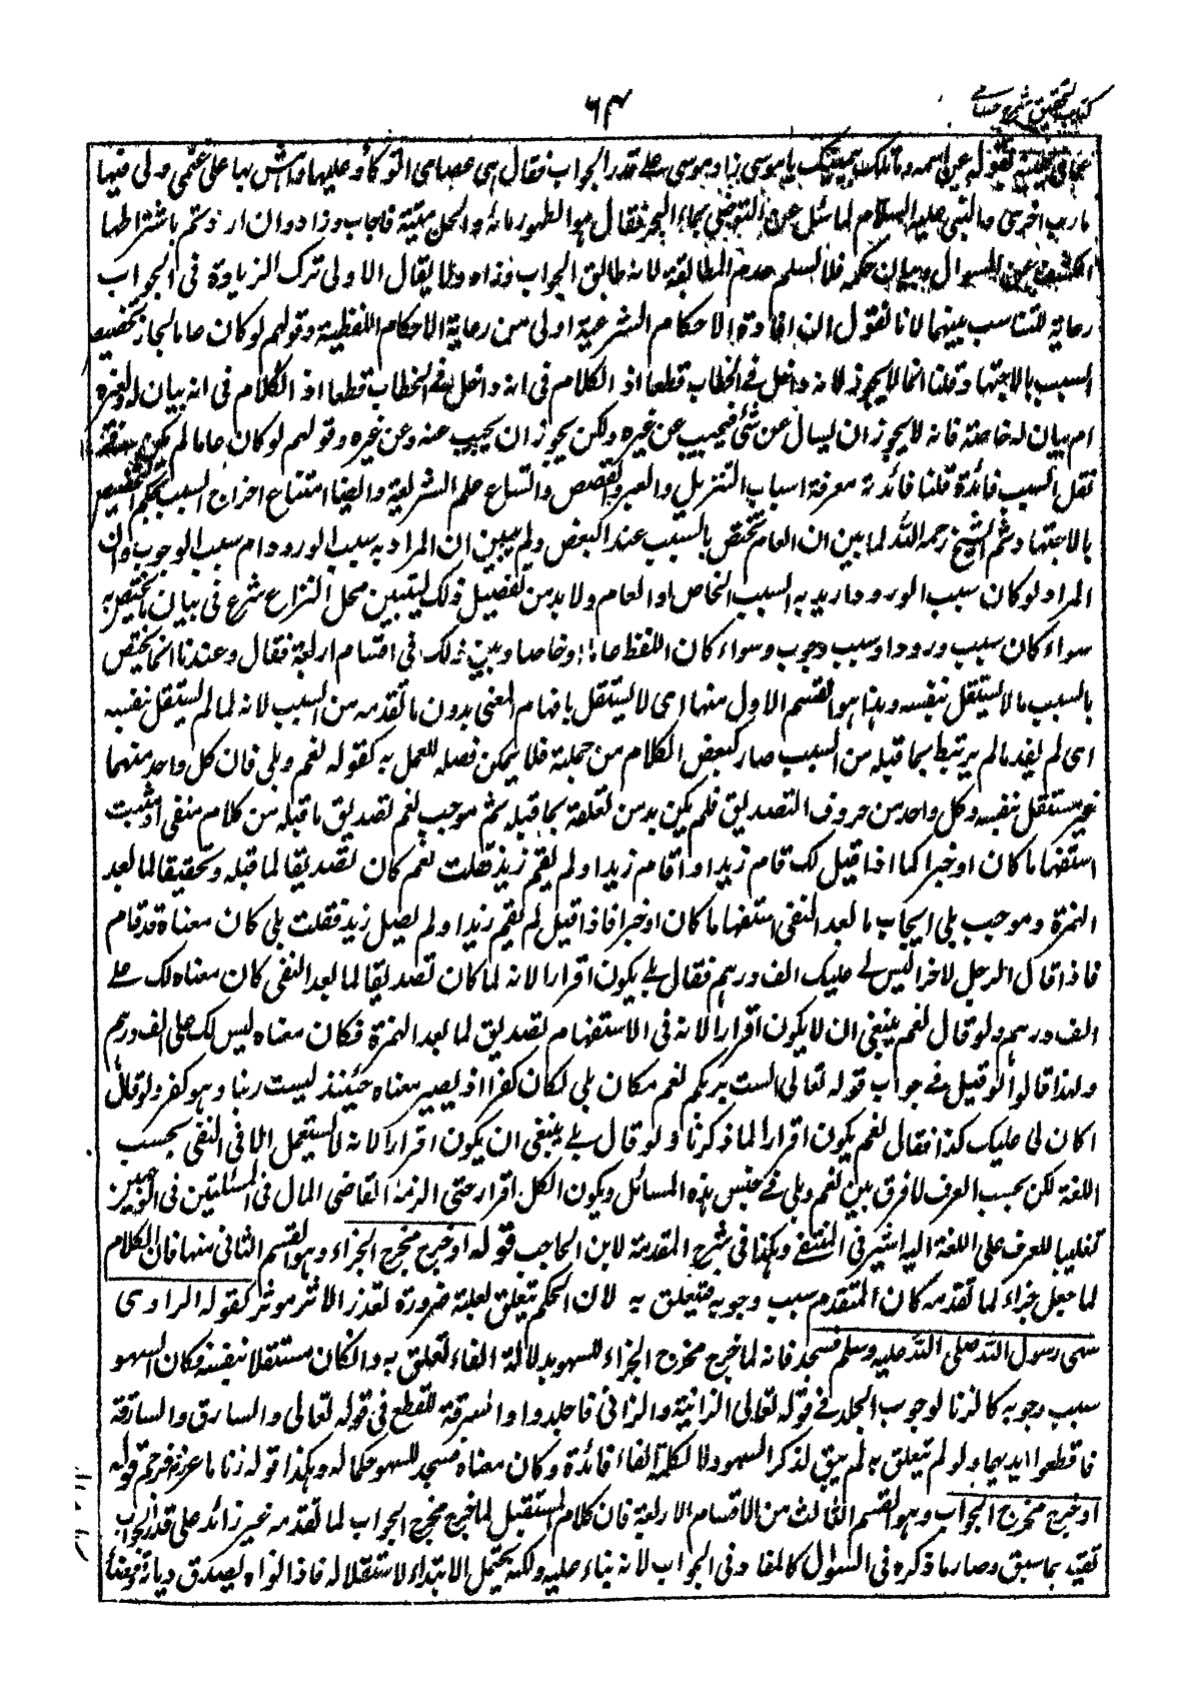 كتاب التحقيق شرح حسامى
۶۴
يمينك يا موسى زاد موسى على قدر الجواب فقال هى عصاى اتوكأ عليها واهش بها على غنمى ولى فيها
مارب اخرى والنبى عليه السلام لما سئل عن التوضى بماء البحر فقال هو الطهور مائه والحل ميتته فاجاب وزاد وان اردتم باشتراطها
الكشف عن السوال وبيان حكمه فلا نسلم عدم المطابقة لانه طابق الجواب وزاد ولا يقال الاولى ترك الزيادة فى الجواب
رعاية للتناسب بينهما لانا نقول ان افادة الاحكام الشرعية اولى من رعاية الاحكام اللفظية وقولهم لو كان عاما لجاز تخصيص
السبب بالاجتهاد قلنا انما لا يجوز لانه داخل فى الخطاب قطعا اذ الكلام فى انه داخل فى الخطاب قطعا اذ الكلام فى انه بيان له ولغيره
ام بيان له خاصة فانه لا يجوز ان يسال عن شئ فيجيب عن غيره ولكن يجوز ان يجيب عنه وعن غيره وقولهم لو كان عاما لم يكن
نقل السبب فائدة قلنا فائدته معرفة اسباب التنزيل والسير والقصص واتساع علم الشريعة وايضا امتناع اخراج السبب بحكم التخصيص
بالاجتهاد ثم الشيخ رحمه الله لما بين ان العام يختص بالسبب عند البعض ولم يبين ان المراد به سبب الورود ام سبب الوجوب وان
المراد لو كان سبب الورود اريد به السبب الخاص او العام ولا بد من تفصيل ذلك ليتبين محل النزاع شرع فى بيان ما يختص به
سواء كان سبب ورود او سبب وجوب وسواء كان اللفظ عاما او خاصا وبين ذلك فى اقسام اربعة فقال وعندنا انما يختص
بالسبب ما لا يستقل بنفسه وهذا هو القسم الاول منها اى لا يستقل بافهام المعنى بدون ما تقدمه من السبب لانه لما لم يستقل بنفسه
اى لم يفد ما لم يرتبط بما قبله من السبب صار كبعض الكلام من جملة فلا يمكن فصله للعمل به كقوله نعم وبلى فان كل واحد منهما
غير مستقل بنفسه وكل واحد من حروف التصديق فلم يكن بد من تعلقه بما قبله ثم موجب نعم تصديق ما قبله من كلام منفى او مثبت
استفهاما كان او خبرا كما اذا قيل لك قام زيد او اقام زيد او لم يقم زيد فقلت نعم كان تصديقا لما قبله وتحقيقا لما بعد
الهمزة وموجب بلى ايجاب ما بعد النفى استفهاما كان او خبرا فاذا قيل لم يقم زيد او لم يصل زيد فقلت بلى كان معناه قد قام
فاذا قال الرجل لاخر اليس لى عليك الف درهم فقال بلى يكون اقرارا لانه لما كان تصديقا لما بعد النفى كان معناه لك على
الف درهم ولو قال نعم ينبغى ان لا يكون اقرارا لانه فى الاستفهام تصديق لما بعد الهمزة فكان معناه ليس لك على الف درهم
ولهذا قالوا لو قيل فى جواب قوله تعالى الست بربكم نعم مكان بلى لكان كفرا اذ يصير معناه حينئذ ليست ربنا وهو كفر ولو قال
اكان لى عليك كذا فقال نعم يكون اقرارا لما ذكرنا ولو قال بلى ينبغى ان يكون اقرارا لانه لا يستعمل الا فى النفى بحسب
اللغة لكن بحسب العرف لا فرق بين نعم وبلى فى جنس هذه المسائل ويكون الكل اقرار حتى الزمه القاضى المال فى المسئلتين فى الوجهين
تغليبا للعرف على اللغة اليه اشير فى وهكذا فى شرح المقدمة لابن الحاجب قوله او خرج مخرج الجزاء وهو القسم الثانى منها فان الكلام
لما جعل جزاء لما تقدمه كان المتقدم سبب وجوبه فيتعلق به لان الحكم يتعلق بعلته ضرورة تعذر الاثر موثر كقوله الراوى
سهى رسول الله صلى الله عليه وسلم فسجد فانه لما خرج مخرج الجزاء للسهو بدلالة الفاء تعلق به وان كان مستقلا بنفسه فكان السهو
سبب وجوبه كالزنا لوجوب الجلد فى قوله تعالى الزانية والزانى فاجلدوا والسرقة للقطع فى قوله تعالى والسارق والسارقة
فاقطعوا ايديهما ولو لم يتعلق به لم يبق لذكر السهو ولا لكلمة الفاء فائدة وكان معناه فسجد للسهو حكما له وهكذا قوله زنا ماعز فرجم قوله
او خرج مخرج الجواب وهو القسم الثالث من الاقسام الاربعة فان كلام المستقبل لما خرج مخرج الجواب لما تقدمه غير زائد على قدر الجواب
تقيد بما سبق وصار ما ذكره فى السوال كالمعاد فى الجواب لانه بناء عليه ولكنه يحتمل الابتداء لاستقلاله فاذا نواه يصدق ديانة وقضاء